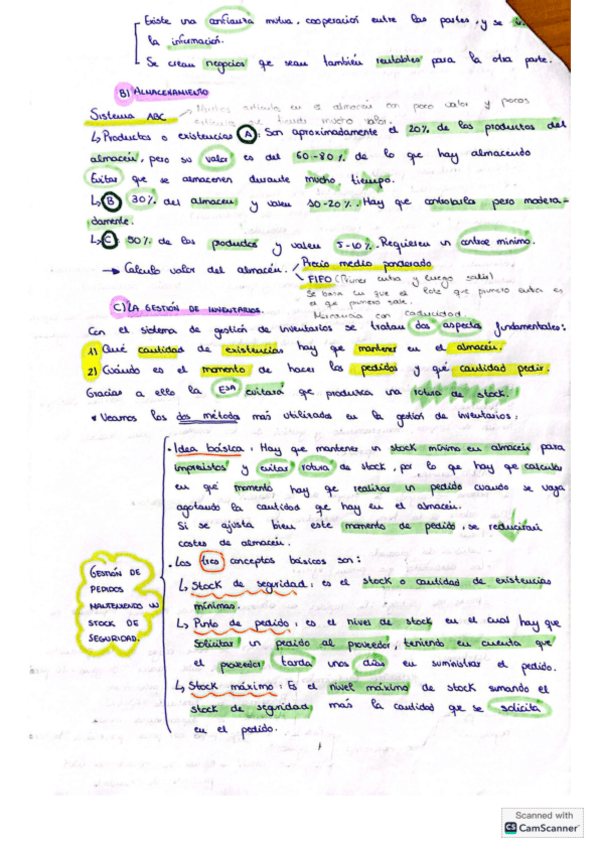 Existe una confianza mutua, cooperación entre las partes, y se
la información.
Se crean negocios que sean también rentables para la otra parte.
B) ALMACENAMIENTO
Sistema ABC Muchos artículos en el almacén con poco valor y pocos
artículos que tienen mucho valor.
↳ Productos o existencias A: Son aproximadamente el 20% de los productos del
almacén, pero su valor es del 60-80% de lo que hay almacenado
Evitar que se almacenen durante mucho tiempo.
↳ B 30% del almacén y valen 10-20%. Hay que controlarla pero modera-
damente.
↳ C: 50% de los productos y valen 5-10%. Requieren un control mínimo.
→ Calculo valor del almacén. Precio medio ponderado
FIFO (Primer entra y luego salir)
Se basa en que el lote que primero entra es
el que primero sale.
Mercancía con caducidad
C) LA GESTIÓN DE INVENTARIOS.
Con el sistema de gestión de inventarios se tratan dos aspectos fundamentales:
1) Qué cantidad de existencias hay que mantener en el almacén.
2) Cuándo es el momento de hacer los pedidos y qué cantidad pedir.
Gracias a ello la ESA evitará que produzca una rotura de stock.
• Veamos los dos método más utilizados en la gestión de inventarios:
• Idea básica: Hay que mantener un stock mínimo en almacén para
imprevistos y evitar rotura de stock, por lo que hay que calcular
en qué momento hay que realizar un pedido cuando se vaya
agotando la cantidad que hay en el almacén.
Si se ajusta bien este momento de pedido, se reducirán
costes de almacén.
• Los tres conceptos básicos son:
↳ Stock de seguridad: es el stock o cantidad de existencias
mínimas.
↳ Punto de pedido: es el nivel de stock en el cual hay que
solicitar un pedido al proveedor, teniendo en cuenta que
el proveedor tarda unos días en suministrar el pedido.
↳ Stock máximo: Es el nivel máximo de stock sumando el
stock de seguridad más la cantidad que se solicita
en el pedido.
GESTIÓN DE
PEDIDOS
MANTENIENDO UN
STOCK DE
SEGURIDAD.
Scanned with
CS CamScanner